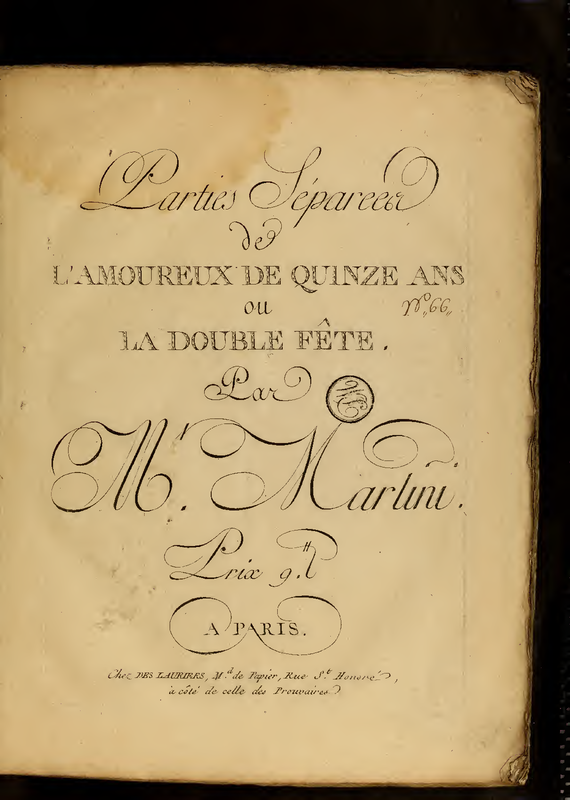 Parties Séparées
de
L'AMOUREUX DE QUINZE ANS
ou
N.º 66
LA DOUBLE FÊTE.
Par
M.r Martini.
Prix 9.tt
A PARIS.
Chez DES LAURIERS, M.d de Papier, Rue S.t Honoré,
à côté de celle des Prouvaires